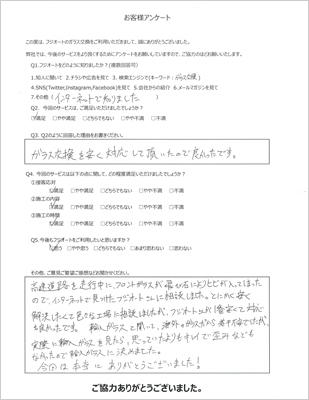 お客様アンケート
この度は、フジオートのガラス交換をご利用いただきまして、誠にありがとうございました。
弊社では、今後のサービスをより良くするためにアンケートをお願いしていますので、ご協力のほどお願いいたします。
Q1.フジオートをどのように知りましたか？(複数回答可)
1.知人に聞いて 2.チラシや広告を見て 3.検索エンジンで(キーワード：ガラス交換)
4.SNS(Twitter,Instagram,Facebook)を見て 5.会社からの紹介 6.メールマガジンを見て
7.その他(インターネットで知りました)
Q2. 今回のサービスは、ご満足いただけましたでしょうか？
満足 □やや満足 □どちらでもない □やや不満 □不満
Q3. Q2のように回答した理由をお書きください。
ガラス交換を安く対応して頂いたので良かったです。
Q4. 今回のサービスは以下の点に関して、どの程度満足いただけましたでしょうか？
①接客対応
満足 □やや満足 □どちらでもない □やや不満 □不満
②施工の内容
満足 □やや満足 □どちらでもない □やや不満 □不満
③施工の時間
満足 □やや満足 □どちらでもない □やや不満 □不満
Q5.今後もフジオートをご利用したいと思いますか？
思う □やや思う □どちらでもない □あまり思わない □思わない
その他、ご意見ご要望ご感想などお聞かせください。
高速道路を走行中に、フロントガラスが飛び石によりヒビが入ってしまった
ので、インターネットで見つけたフジオートさんに相談しました。とにかく安く
解決したくて色々な工場に相談しましたが、フジオートさんが1番安くて対応
も良かったです。輸入ガラスと聞いて、海外のガラスだから若干不安でしたが、
実際に輸入ガラスを見たら、思っていたよりもキレイで歪みなども
なかったので輸入ガラスに決めました。
今回は本当にありがとうございました！
ご協力ありがとうございました。